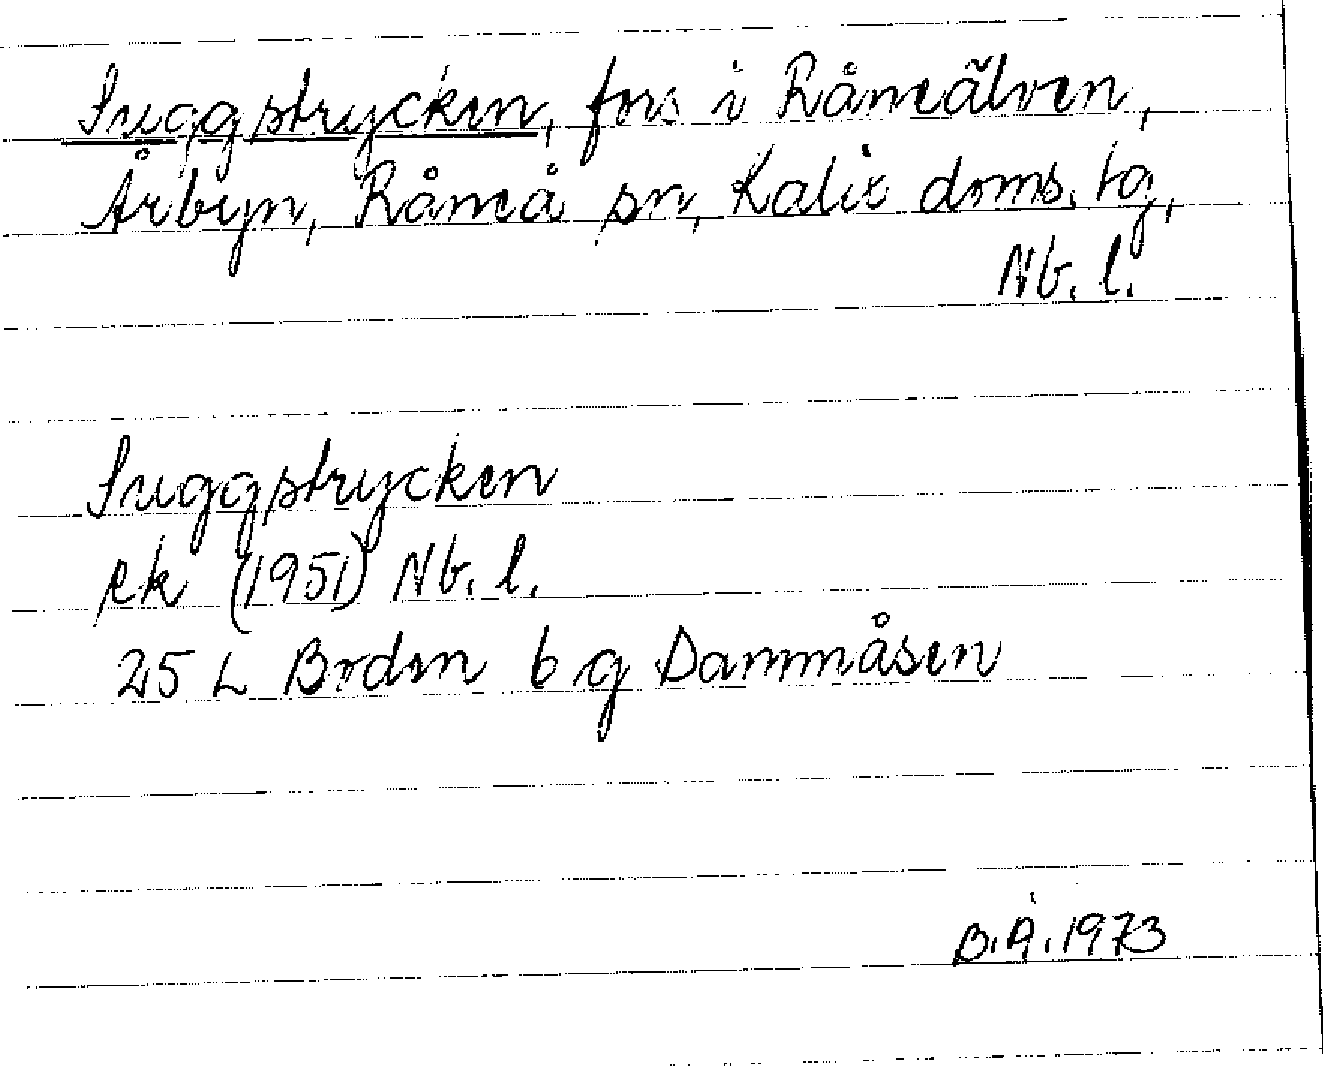 Suggstrycken, fors i Råneälven,
Årbyn, Råneå sn, Kalix doms. tg,
Nb. l.
Suggstrycken
rk (1951) Nb. l.
25 L Boden 6 g Dammåsen
B.Å. 1973